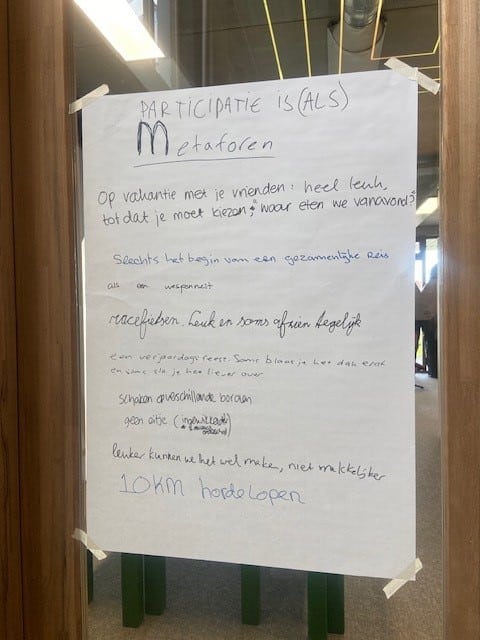 PARTICIPATIE IS (ALS)
Metaforen
Op vakantie met je vrienden: heel leuk,
totdat je moet kiezen: "waar eten we vanavond?"
Slechts het begin van een gezamenlijke reis
als een wespennest
racefietsen. Leuk en soms afzien tegelijk
een verjaardagsfeest. Soms blaas je het dak eraf
en soms sla je het liever over
schaken op verschillende borden
geen eitje (ingewikkeld)
leuker kunnen we het wel maken, niet makkelijker
10KM hordelopen